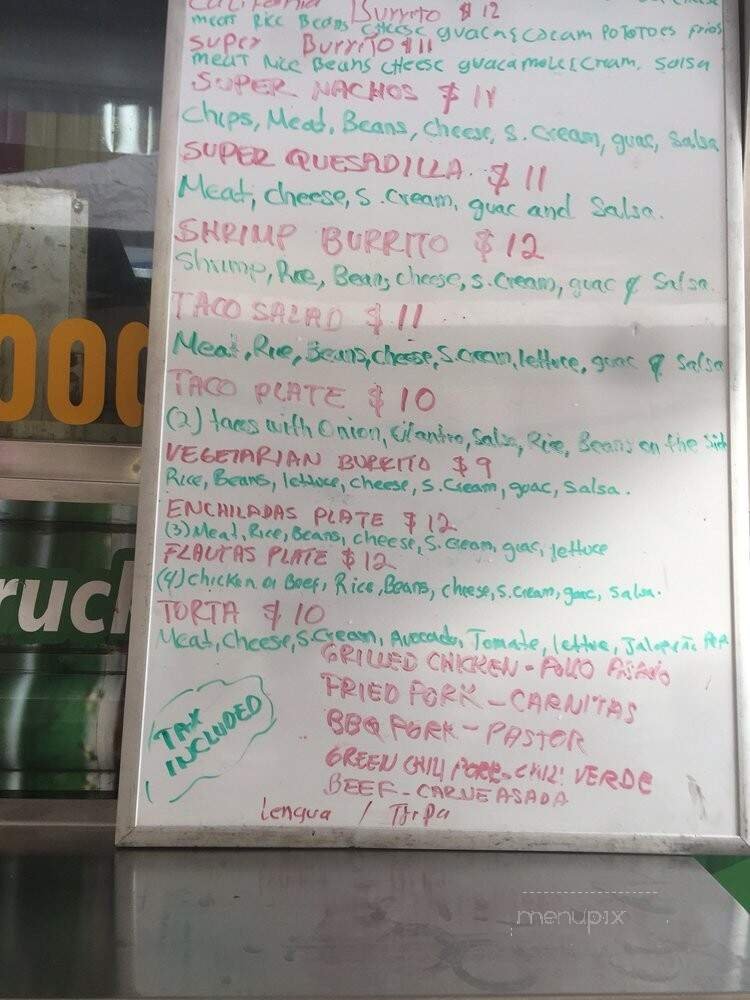 California Burrito $ 12
meat Rice Beans cheese guac s cream POTOTOES frios
Super Burrito $11
meat Rice Beans cheese guacamole s cream, salsa
SUPER NACHOS $ 11
Chips, Meat, Beans, cheese, s. cream, guac, salsa
SUPER QUESADILLA. $ 11
Meat, cheese, s. cream, guac and Salsa.
SHRIMP BURRITO $ 12
Shrimp, Rice, Beans, cheese, s. cream, guac & Salsa.
TACO SALAD $ 11
Meat, Rice, Beans, cheese, s. cream, lettuce, guac & Salsa
TACO PLATE $ 10
(2) tacos with Onion, Cilantro, Salsa, Rice, Beans on the Side
000
VEGETARIAN BURRITO $ 9
Rice, Beans, lettuce, cheese, s. cream, guac, salsa.
ENCHILADAS PLATE $ 12
(3) Meat, Rice, Beans, cheese, s. cream, guac, lettuce
FLAUTAS PLATE $ 12
(4) chicken or Beef, Rice, Beans, cheese, s. cream, guac, salsa.
ruck
TORTA $ 10
Meat, cheese, s. cream, Avocado, Tomate, lettuce, Jalapeño
GRILLED CHICKEN - POLLO ASADO
FRIED PORK - CARNITAS
BBQ PORK - PASTOR
GREEN CHILI PORK - CHILI VERDE
BEEF - CARNE ASADA
Lengua / Tripa
TAX
INCLUDED
menupix